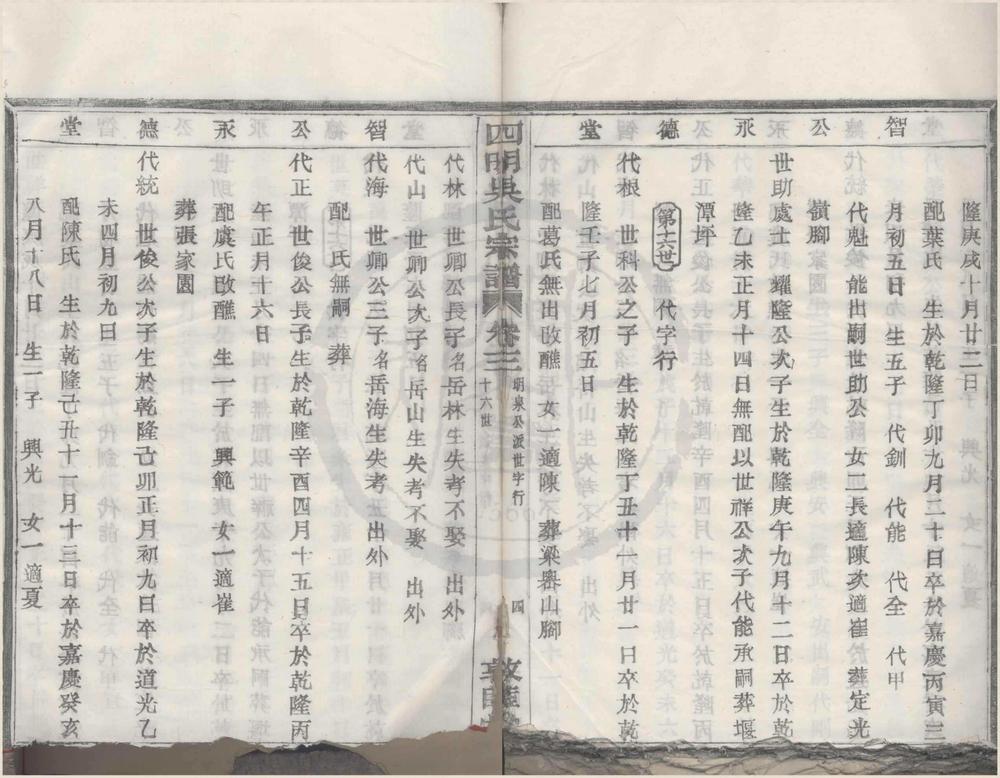 智
公
永
德
堂
隆庚戌十月廿二日
配葉氏 生於乾隆丁卯九月三十日卒於嘉慶丙寅三
月初五日 生五子 代釧 代能 代全 代甲
代魁 能出嗣世助公 女二長適陳次適崔 葬定光
嶺腳
世助處士 耀隆公次子生於乾隆庚午九月十二日卒於乾
隆乙未正月十四日無配以世祥公次子代能承嗣葬堰
潭坪
第十六世 代字行
代根 世科公之子 生於乾隆丁丑十一月廿一日卒於乾
隆壬子七月初五日
配葛氏無出改醮 女一適陳 葬梁嶴山腳
四明吳氏宗譜 卷三 明泉公派世字行 十六世 四
代林 世卿公長子名岳林生失考不娶 出外
代山 世卿公次子名岳山生失考不娶 出外
代海 世卿公三子名岳海生失考 出外
配 氏無嗣 葬
代正 世俊公長子生於乾隆辛酉四月十五日卒於乾隆丙
午正月十六日
配虞氏改醮 生一子 興範 女一適崔
葬張家園
代統 世俊公次子生於乾隆己卯正月初九日卒於道光乙
未四月初九日
配陳氏 生於乾隆己丑十一月十三日卒於嘉慶癸亥
八月十八日 生一子 興光 女一適夏
智
公
永
德
堂